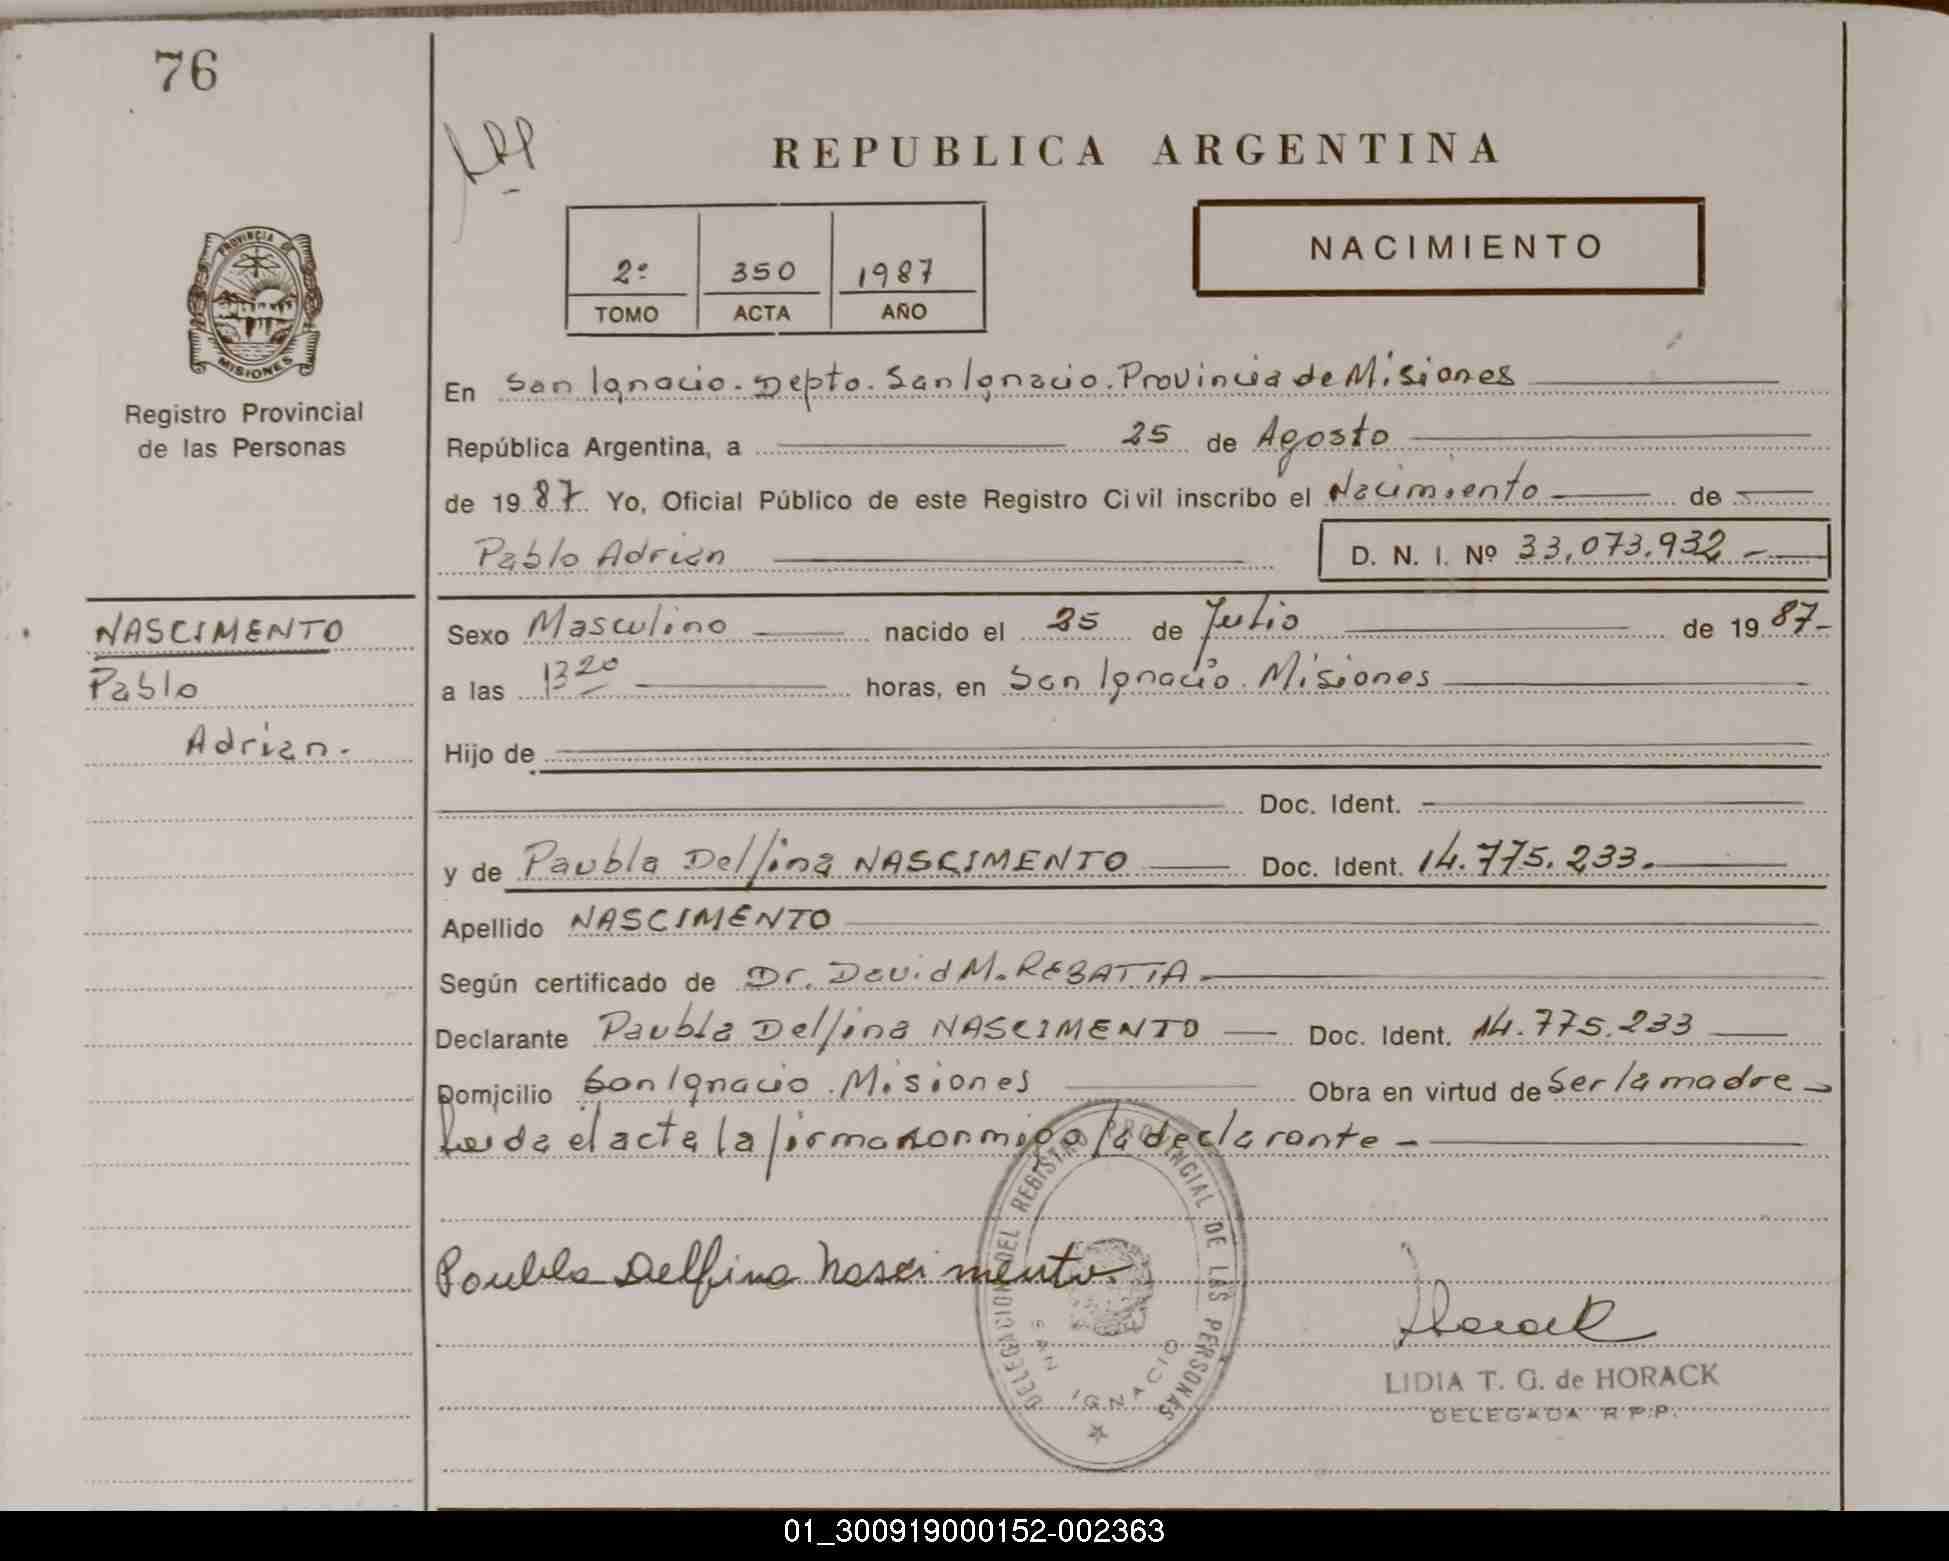 76
REPUBLICA ARGENTINA
PROVINCIA DE MISIONES
Registro Provincial
de las Personas
2º 350 1987
TOMO ACTA AÑO
NACIMIENTO
En San Ignacio. Depto. San Ignacio. Provincia de Misiones
República Argentina, a 25 de Agosto
de 1987 Yo, Oficial Público de este Registro Civil inscribo el Nacimiento de
Pablo Adrian D. N. I. Nº 33,073.932
NASCIMENTO
Pablo
Adrian.
Sexo Masculino nacido el 25 de Julio de 1987
a las 13 20 horas, en San Ignacio. Misiones
Hijo de
Doc. Ident.
y de Paubla Delfina NASCIMENTO Doc. Ident. 14.775.233.
Apellido NASCIMENTO
Según certificado de Dr. David M. REBATTA
Declarante Paubla Delfina NASCIMENTO Doc. Ident. 14.775.233
Domicilio San Ignacio. Misiones Obra en virtud de Ser la madre
Leida el acta la firma conmigo la declarante
Paubla Delfina Nascimento.
DELEGACION DEL REGISTRO PROVINCIAL DE LAS PERSONAS
SAN IGNACIO
Horack
LIDIA T. G. de HORACK
DELEGADA R.P.P.
01_300919000152-002363